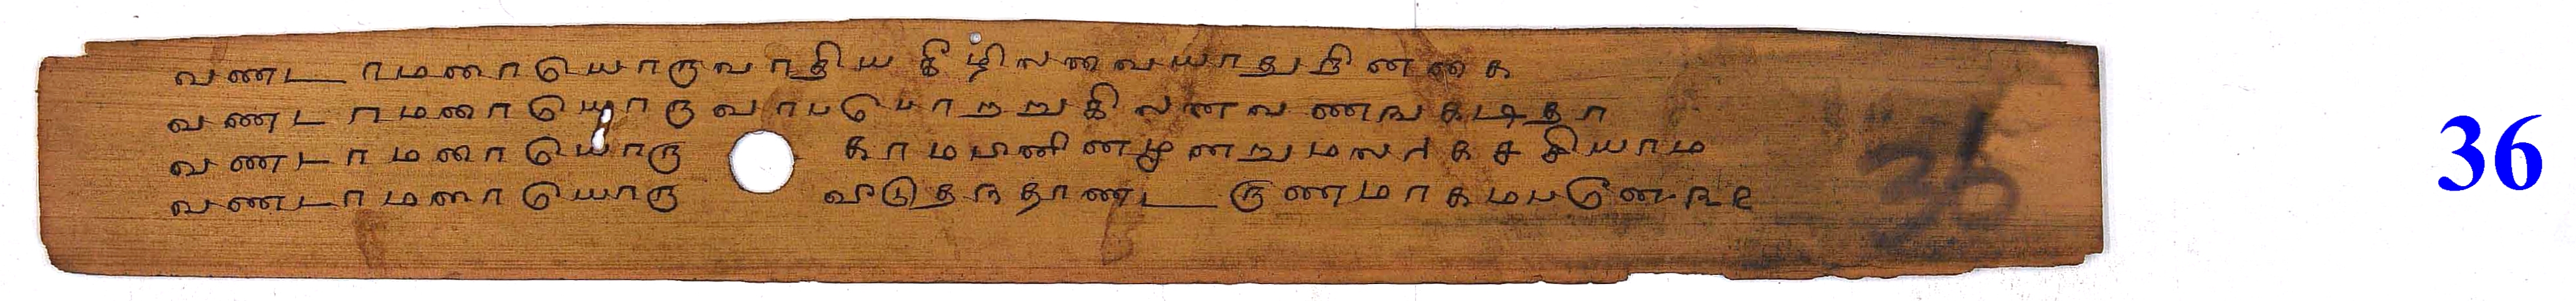 வணடாமரையொருவாதியகீழிலவையாதுநினகை
வணடாமரையொருவாபபொறறுகிலனவணஙகடிதா
வணடாமரையொரு காமபினினமுனறுமலர்கசசியாம
வணடாமரையொரு வீடுதநதாணட ருணமாகமபனே ௩௨
36
36